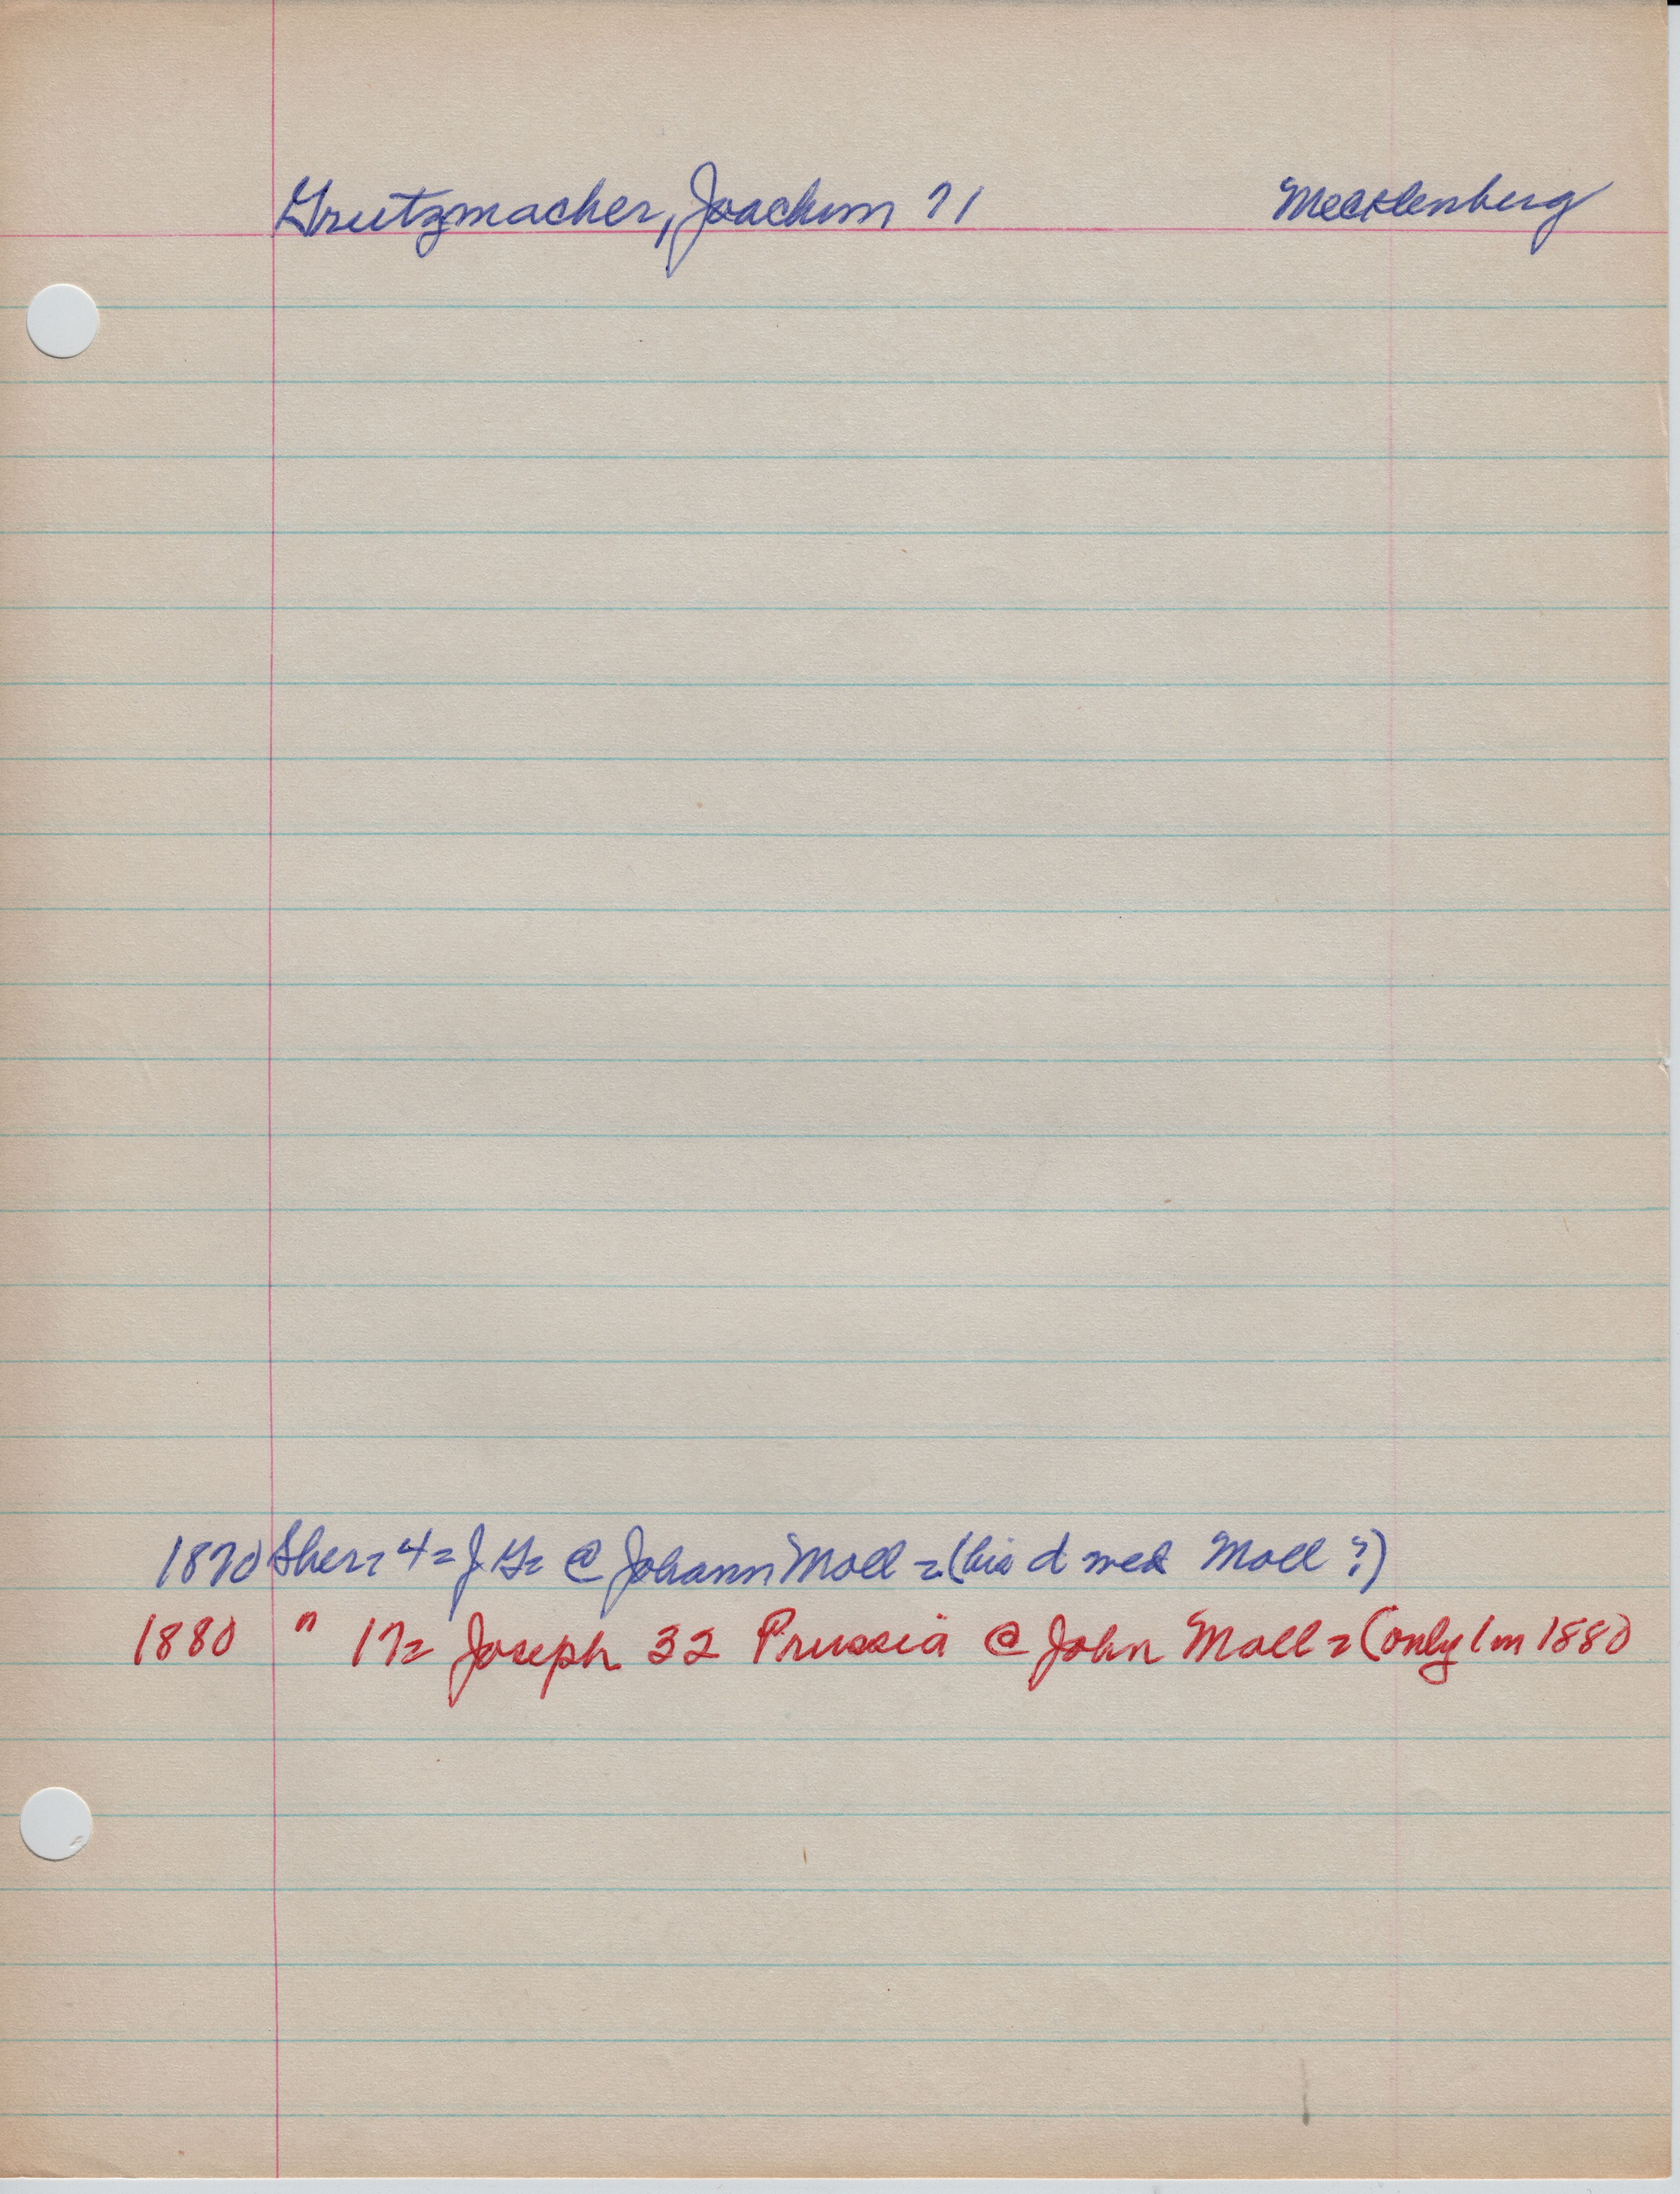 Grutzmacher, Joachim 71 Mecklenberg
1870 Sher= 4= J. G= @ Johann Moll = (his d med Moll ?)
1880 " 17= Joseph 32 Prussia @ John Moll = (only 1 in 1880